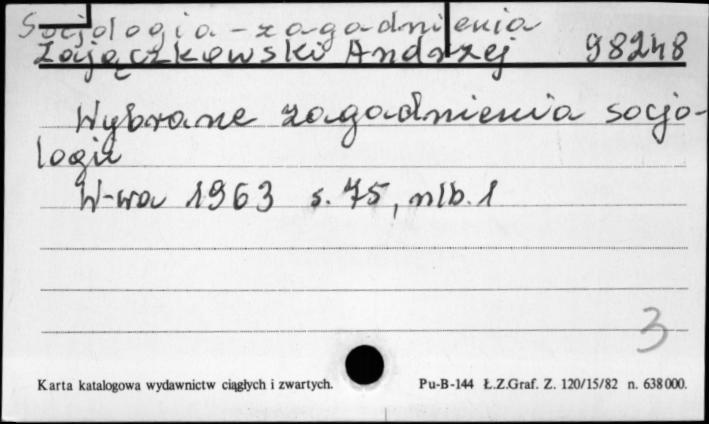 Socjologia - zagadnienia
Zajączkowski Andrzej 98248
Wybrane zagadnienia socjo-
logii
W-wa 1963 s. 75, nlb. 1
3
Karta katalogowa wydawnictw ciągłych i zwartych. Pu-B-144 Ł.Z.Graf. Z. 120/15/82 n. 638000.